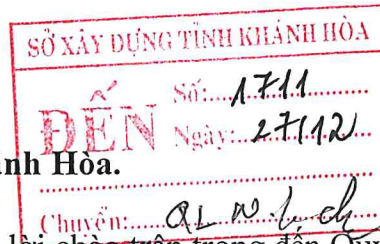 SỞ XÂY DỰNG TỈNH KHÁNH HÒA
ĐẾN
Số:.....1711
Ngày:.....27/12
ánh Hòa.
Chuyển:.....
lời chào trân trọng đến Quý